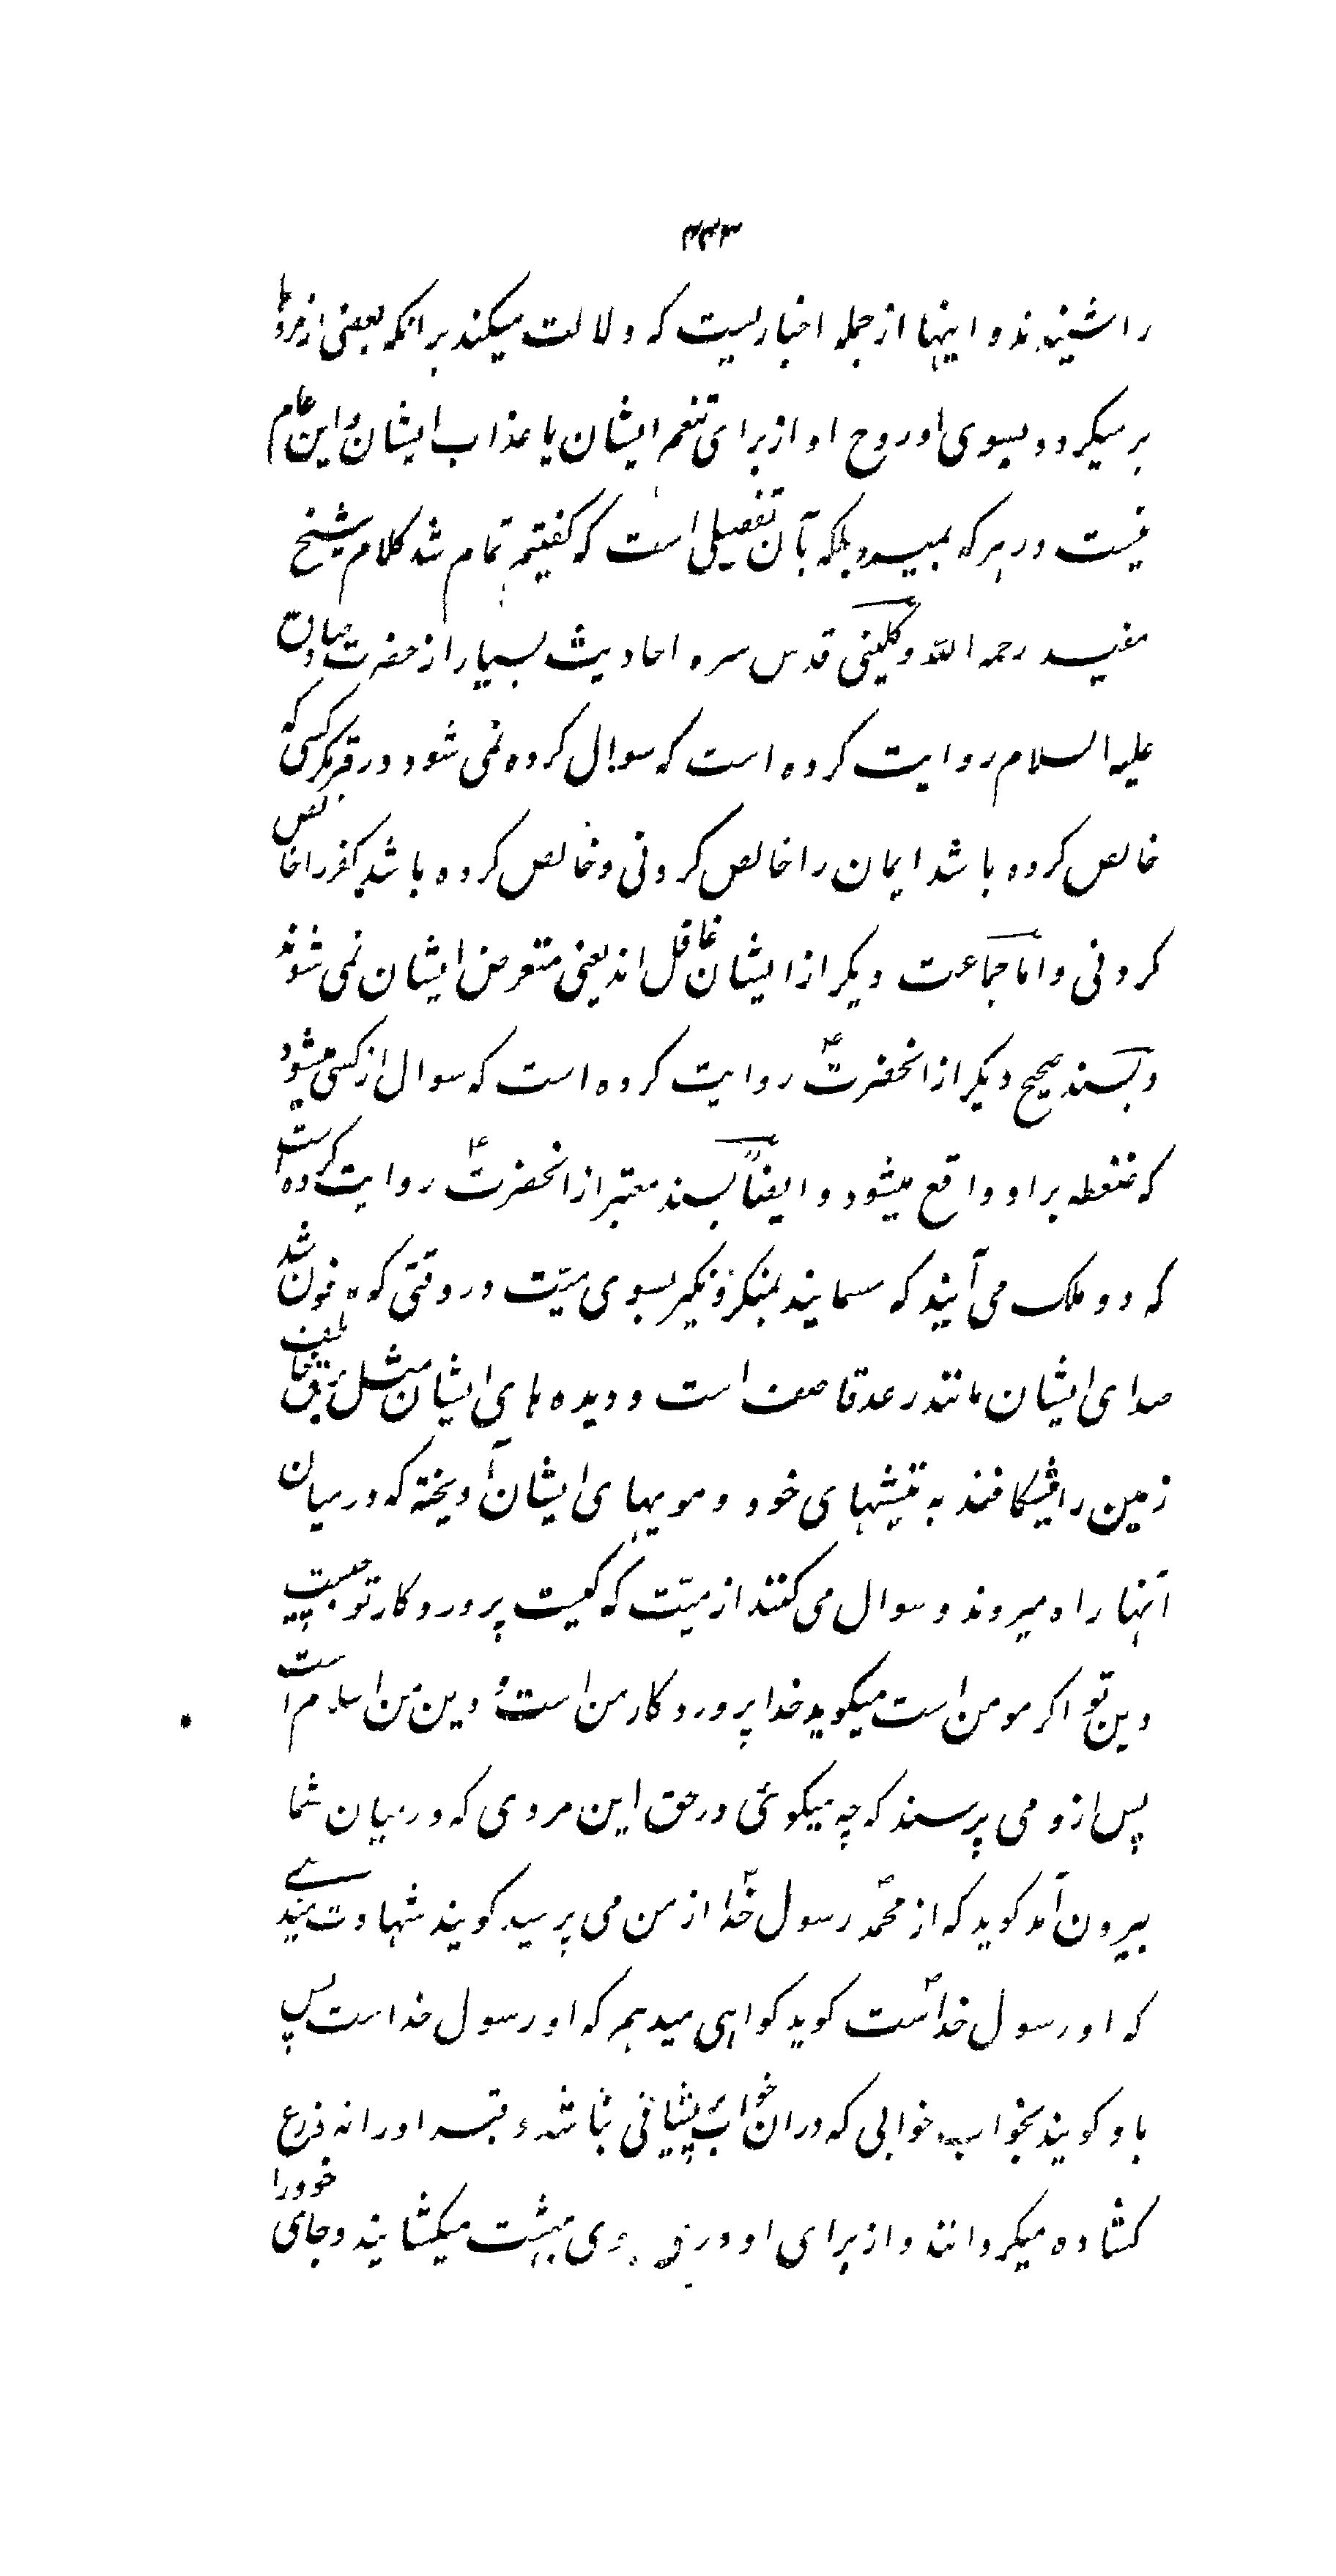 ۴۴۳
را شنیدند و اینها از جمله اخباریست که دلالت میکند بر انکه بعضی از مردها
بر میکردد بسوی او روح او از برای تنعم ایشان یا عذاب ایشان و این عام
نیست در هر که بمیرد بلکه بآن تفصیلی است که کفتیم تمام شد کلام شیخ
مفید رحمه اللّه و کلینی قدس سره احادیث بسیار از حضرت صادق
علیه السلام روایت کرده است که سوال کرده نمی شود در قبر مکر کسی که
خالص کرده باشد ایمان را خالص کردنی و خالص کرده باشد کفر را خالص
کردنی و اما جماعت دیکر از ایشان غافل اند یعنی متعرض ایشان نمی شوند
و بسند صحیح دیکر از انحضرتؑ روایت کرده است که سوال از کسی میشود
که ضغطه بر او واقع میشود و ایضاً بسند معتبر از انحضرتؑ روایت کرده است
که دو ملک می آیند که مسمایند بمنکر و نکیر بسوی میّت در وقتی که مدفون شد
صدای ایشان مانند رعد قاصف است و دیده های ایشان مثل برق خاطف
زمین را میشکافند به نیشهای خود و مویهای ایشان آویخته که در میان
آنها راه میروند و سوال می کنند از میّت که کیست پروردکار تو چیست
دین تو اکر مومن است میکوید خدا پروردکار من است و دین من اسلام است
پس از و می پرسند که چه میکوئی در حق این مردی که در میان شما
بیرون آمد کوید که از محمدؐ رسول خداؐ از من می پرسید کویند شهادت میدهی
که او رسول خداؐست کوید کواهی میدهم که او رسول خداست پس
باو کویند بخواب خوابی که در ان خواب پریشانی نباشد و قبر او را نه ذرع
کشاده میکردانند و از برای او دری بروی بهشت میکشایند و جای خود را